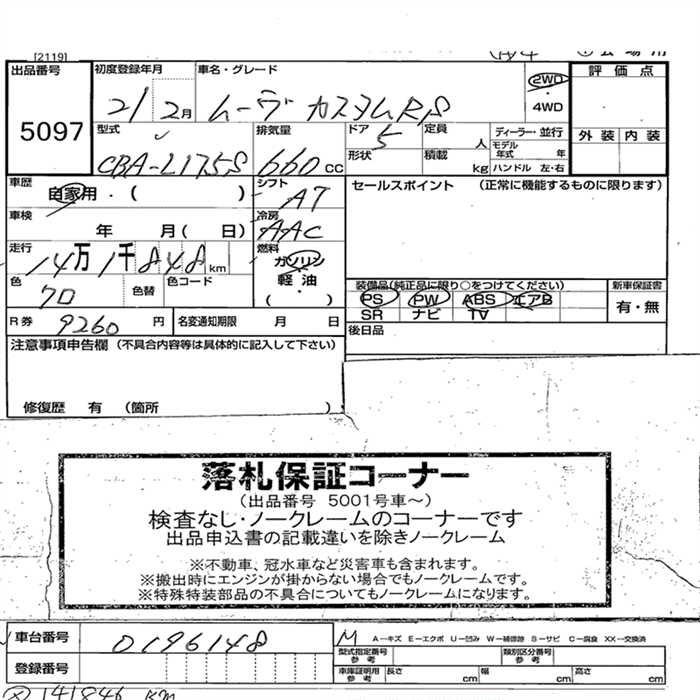 [2119]
出品番号 初度登録年月 車名・グレード 2WD 評価点
5097 21/2月 ムーヴ カスタムRS ・4WD
型式 排気量 ドア 定員 ディーラー・並行 外装 内装
CBA-L175S 660cc 5 人 モデル年式 年
形状 積載 kg ハンドル 左・右
車歴 自家用・( ) シフト AT セールスポイント (正常に機能するものに限ります)
車検 年 月( 日) 冷房 AAC
走行 14万1千848km 燃料 ガソリン・軽油 ( )
色 色替 色コード 装備品(純正品に限り○をつけてください) 新車保証書
PS PW ABS エアB 有・無
SR ナビ TV
R券 9260円 名変通知期限 月 日 後日品
注意事項申告欄 (不具合内容等は具体的に記入して下さい)
修復歴 有 (箇所 )
落札保証コーナー
(出品番号 5001号車～)
検査なし・ノークレームのコーナーです
出品申込書の記載違いを除きノークレーム
※不動車、冠水車など災害車も含まれます。
※搬出時にエンジンが掛からない場合でもノークレームです。
※特殊特装部品の不具合についてもノークレームになります。
車台番号 0196148 M A－キズ E－エクボ U－凹み W－補修跡 S－サビ C－腐食 XX－交換済
型式指定番号 参考 類別区分番号 参考
登録番号 車庫証明用 参考 長さ cm 幅 cm 高さ cm
141846 km